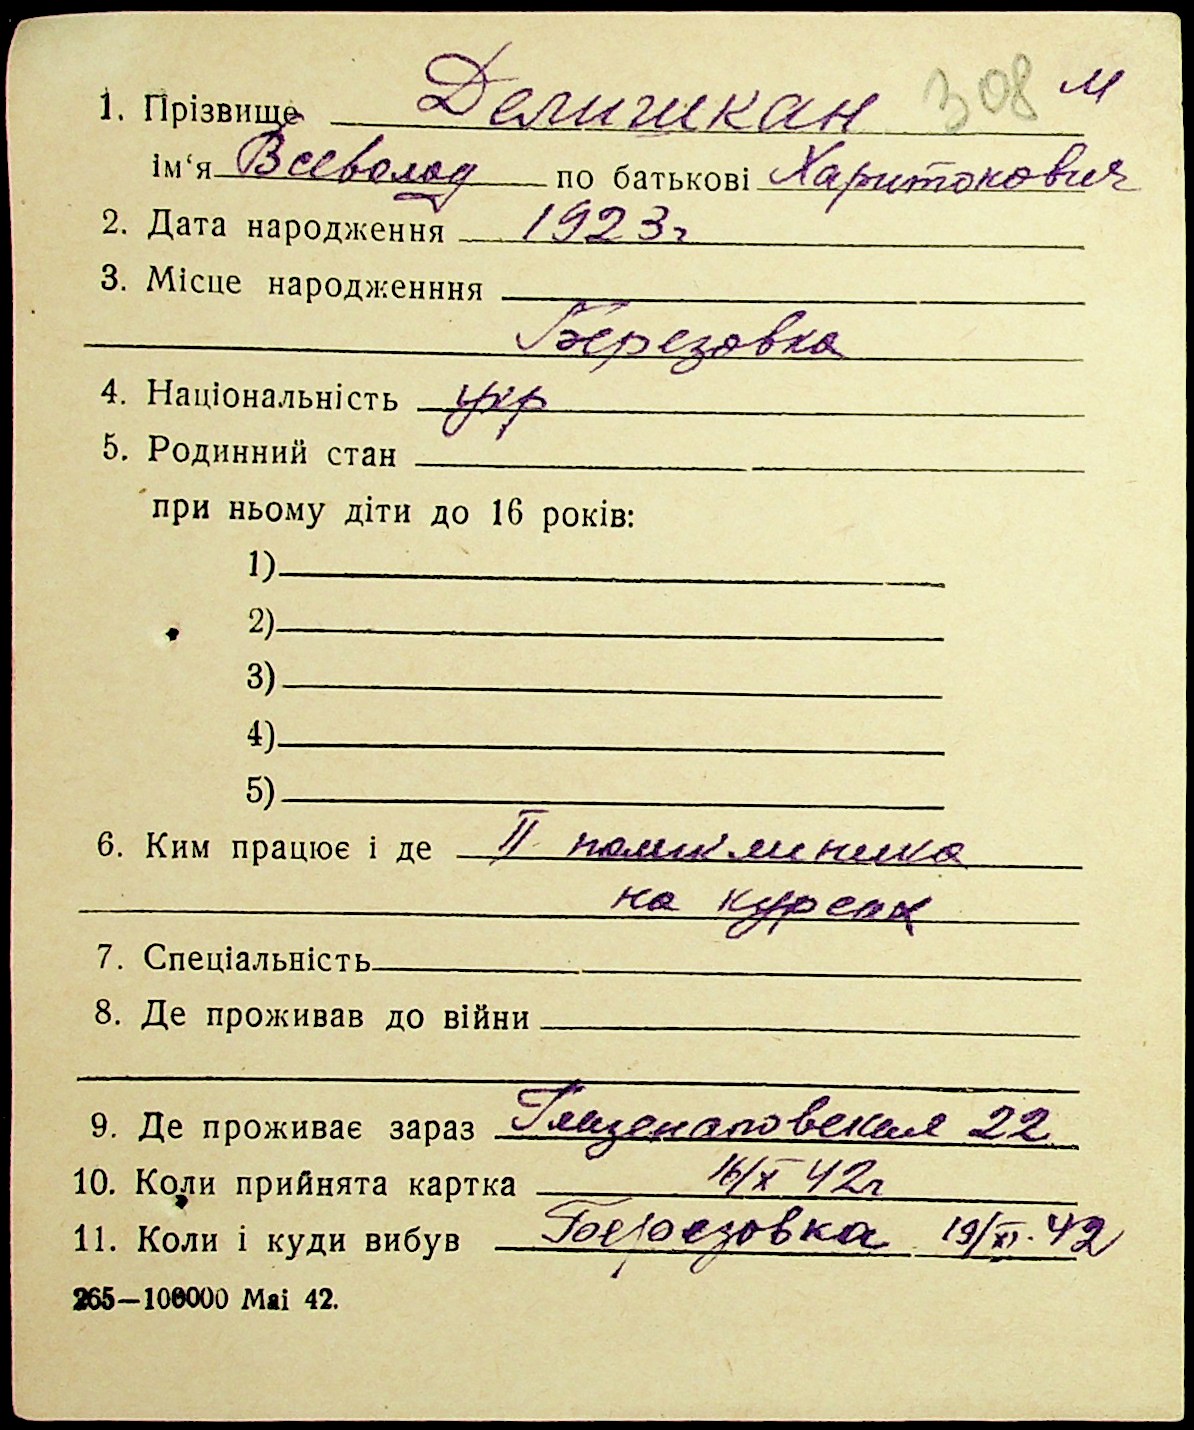 1. Прізвище Делижкан 308 м
ім‘я Всеволод по батькові Харитонович
2. Дата народження 1923 г
3. Місце народженння
Березовка
4. Національність укр
5. Родинний стан
при ньому діти до 16 років:
1)
2)
3)
4)
5)
6. Ким працює і де II
на курсах
7. Спеціальність
8. Де проживав до війни
9. Де проживає зараз Глазенаповская 22
10. Коли прийнята картка 16/X 42 г
11. Коли і куди вибув Березовка 19/XI. 42
265—100000 Mai 42.